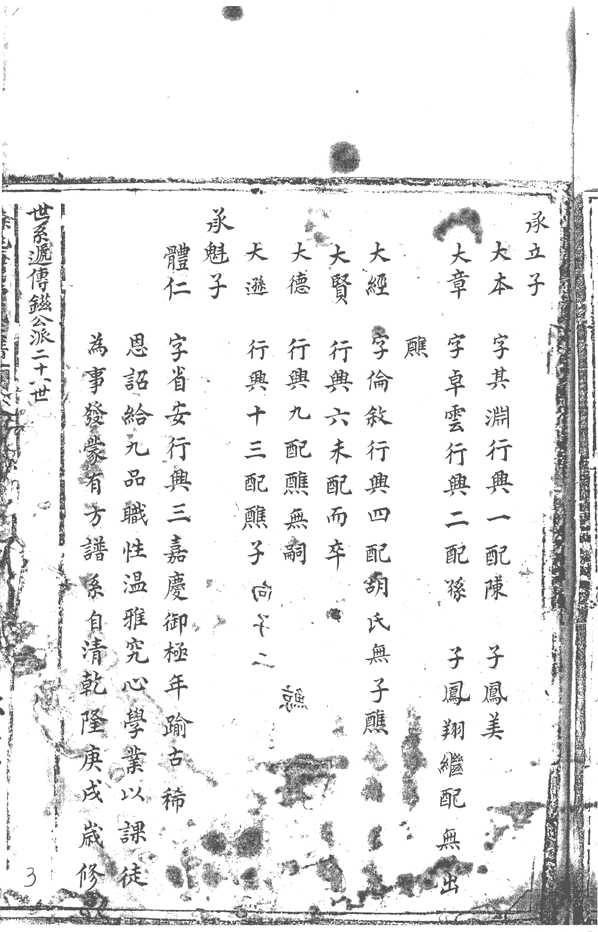 承立子
大本　字其淵行興一配陳　子鳳美
大章　字卓雲行興二配孫　子鳳翔繼配無出
醮
大經　字倫敘行興四配胡氏無子醮
大賢　行興六未配而卒
大德　行興九配醮無嗣
大遜　行興十三配醮子
承魁子
體仁　字省安行興三嘉慶御極年踰古稀
恩詔給九品職性温雅究心學業以課徒
為事發蒙有方譜系自清乾隆庚戌歲修
世系遞傳鎡公派二十八世
3